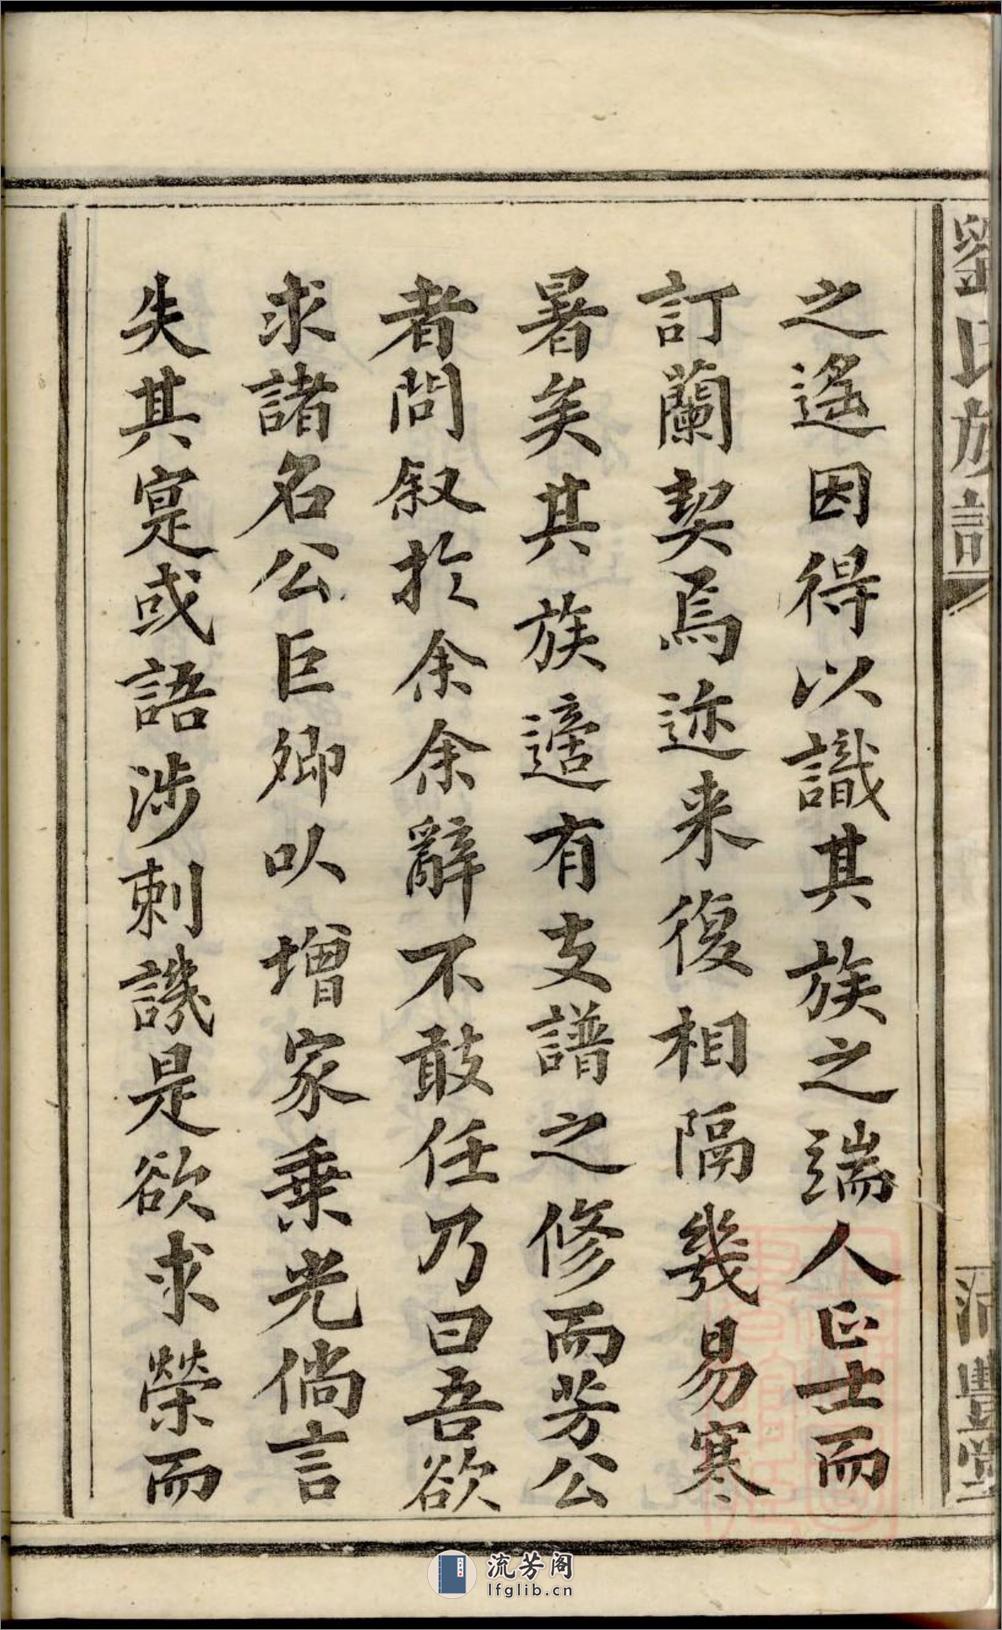 劉氏族譜
沂豊堂
之遙因得以識其族之端人正士而
訂蘭契焉迩来復相隔幾易寒
暑矣其族適有支譜之修而芳公
者問叙於余余辭不敢任乃曰吾欲
求諸名公巨卿以增家乗光倘言
失其寔或語涉刺譏是欲求榮而
流芳阁
lfglib.cn